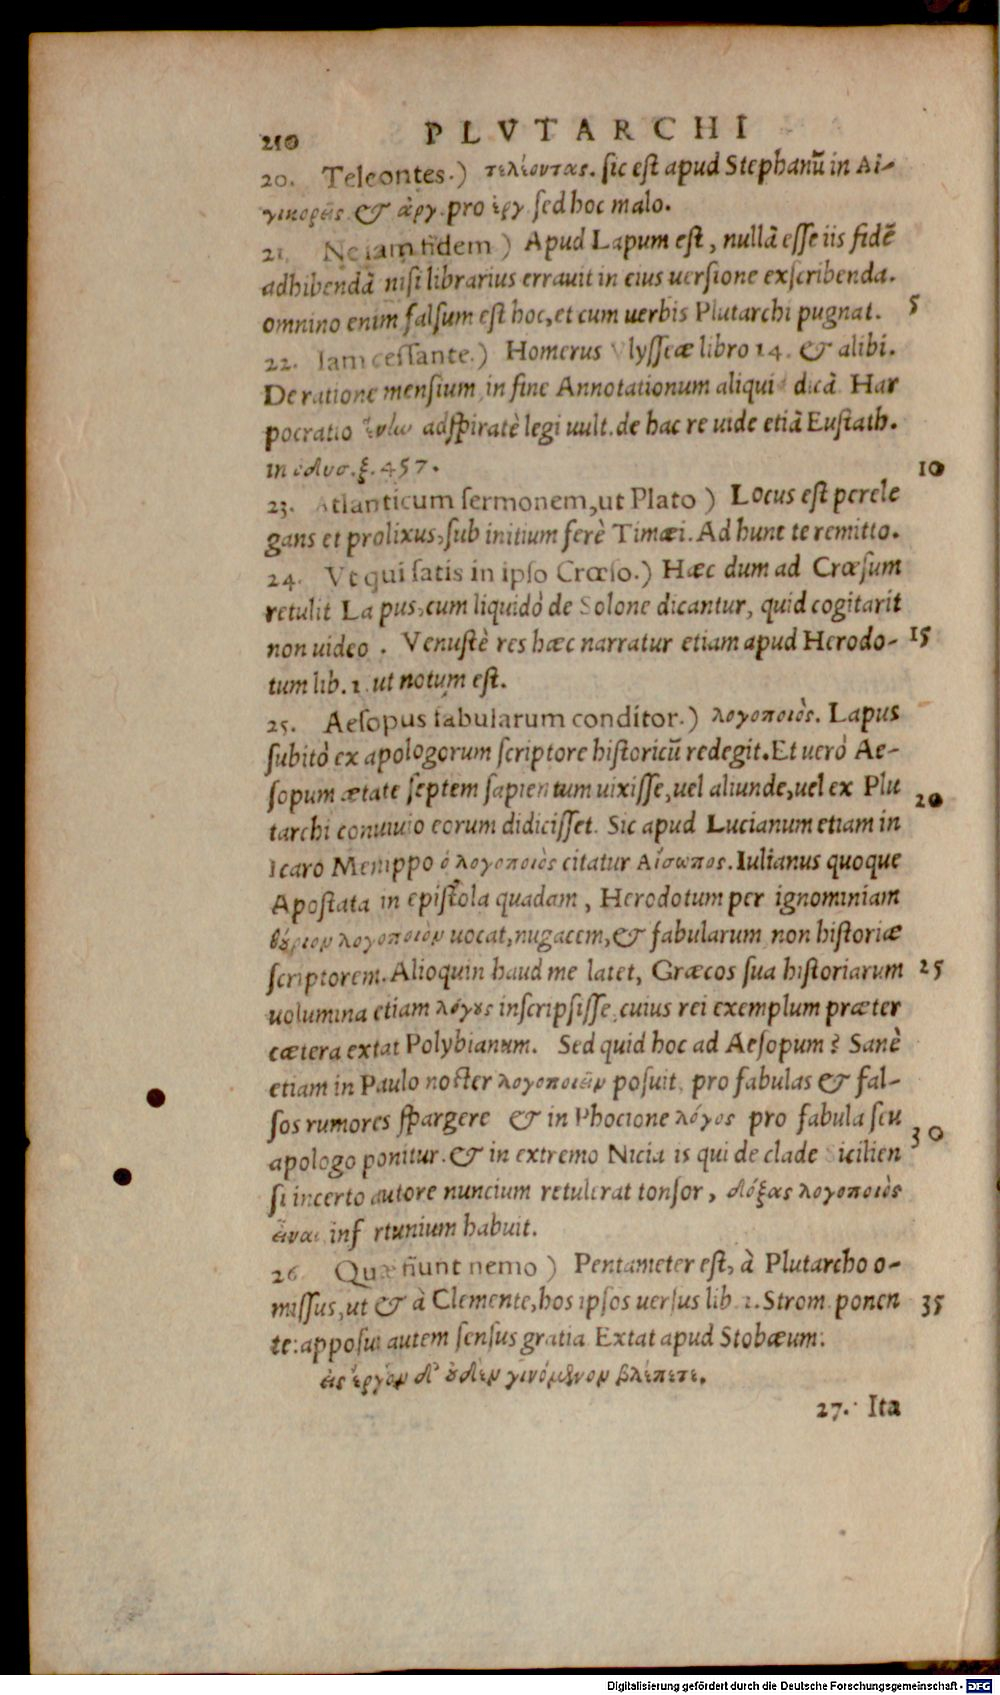 210 PLVTARCHI
20. Teleontes.) τελέοντας. sic est apud Stephanũ in Αἰ-
γικορῆς & ἀργ. pro ἐργ sed hoc malo.
21. Ne iam fidem ) Apud Lapum est, nullã esse iis fidẽ
adhibendã nisi librarius errauit in eius uersione exscribenda.
omnino enim falsum est hoc, et cum uerbis Plutarchi pugnat. 5
22. Iam cessante.) Homerus Vlysseæ libro 14. & alibi.
De ratione mensium in fine Annotationum aliqui dicã. Har
pocratio adspiratè legi uult. de hac re uide etiã Eustath.
in οδυσ. ξ. 457. 10
23. Atlanticum sermonem, ut Plato ) Locus est perele
gans et prolixus, sub initium ferè Timæi. Ad hunc te remitto.
24. Vt qui satis in ipso Crœso.) Hæc dum ad Crœsum
retulit Lapus, cum liquidò de Solone dicantur, quid cogitarit
non uideo . Venustè res hæc narratur etiam apud Herodo- 15
tum lib. 1. ut notum est.
25. Aesopus fabularum conditor.) λογοποιὸς. Lapus
subitò ex apologorum scriptore historicũ redegit. Et uerò Ae-
sopum ætate septem sapientum uixisse, uel aliunde, uel ex Plu 20
tarchi conuiuio eorum didicisset. Sic apud Lucianum etiam in
Icaro Menippo ὁ λογοποιὸς citatur Αἴσωπος. Iulianus quoque
Apostata in epistola quadam, Herodotum per ignominiam
θούριον λογοποιὸν uocat, nugacem, & fabularum non historiæ
scriptorem. Alioquin haud me latet, Græcos sua historiarum 25
uolumina etiam λόγους inscripsisse, cuius rei exemplum præter
cætera extat Polybianum. Sed quid hoc ad Aesopum? Sanè
etiam in Paulo noster λογοποιεῖν posuit, pro fabulas & fal-
sos rumores spargere & in Phocione λόγος pro fabula seu 30
apologo ponitur. & in extremo Nicia is qui de clade Sicilien
si incerto autore nuncium retulerat tonsor, δόξας λογοποιὸς
εἶναι inf rtunium habuit.
26 Quæ fiunt nemo ) Pentameter est, à Plutarcho o-
missus, ut & à Clemente, hos ipsos uersus lib. 1. Strom. ponen 35
te: apposui autem sensus gratia. Extat apud Stobæum:
εἰς ἔργον δ' οὐδὲν γινόμενον βλέπετε.
27. Ita
Digitalisierung gefördert durch die Deutsche Forschungsgemeinschaft - DFG